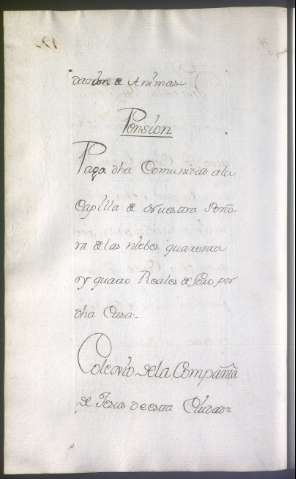 dacion de Animas
Pension
Paga dha Comunidad a la
Capilla de Nuestra Seño-
ra de las niebes quarenta
y quatro Reales de Pon por
dha Casa.
Colegio de la Compañia
de Jesus de esta Ciudad